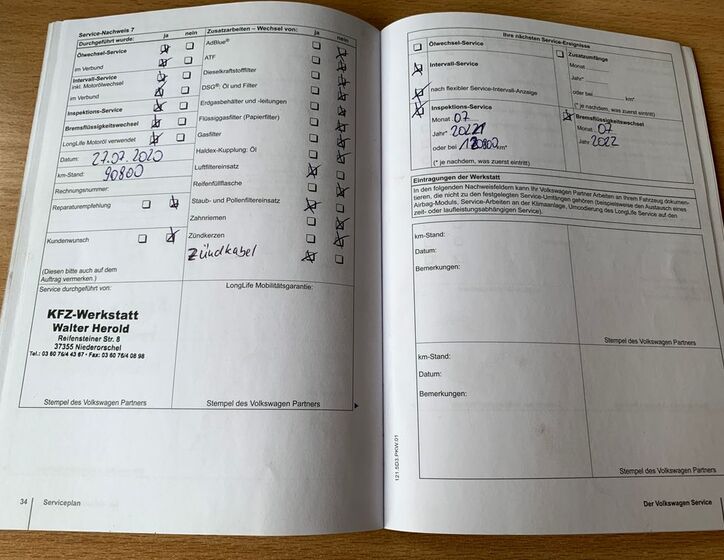 Service-Nachweis 7
Durchgeführt wurde: ja nein
Ölwechsel-Service
im Verbund
Intervall-Service
inkl. Motorölwechsel
im Verbund
Inspektions-Service
Bremsflüssigkeitswechsel
LongLife Motoröl verwendet
Datum: 27.07.2020
km-Stand: 90800
Rechnungsnummer:
Reparaturempfehlung
Kundenwunsch
(Diesen bitte auch auf dem
Auftrag vermerken.)
Zusatzarbeiten – Wechsel von: ja nein
AdBlue®
ATF
Dieselkraftstofffilter
DSG®: Öl und Filter
Erdgasbehälter und -leitungen
Flüssiggasfilter (Papierfilter)
Gasfilter
Haldex-Kupplung: Öl
Luftfiltereinsatz
Reifenfüllflasche
Staub- und Pollenfiltereinsatz
Zahnriemen
Zündkerzen
Zündkabel
Service durchgeführt von:
KFZ-Werkstatt
Walter Herold
Reifensteiner Str. 8
37355 Niederorschel
Tel.: 03 60 76/4 43 67 • Fax: 03 60 76/4 08 98
Stempel des Volkswagen Partners
LongLife Mobilitätsgarantie:
Stempel des Volkswagen Partners
34 Serviceplan
Ihre nächsten Service-Ereignisse
Ölwechsel-Service
Intervall-Service
nach flexibler Service-Intervall-Anzeige
Inspektions-Service
Monat 07
Jahr*
oder bei km*
(* je nachdem, was zuerst eintritt)
Zusatzumfänge
Monat
Jahr*
oder bei km*
(* je nachdem, was zuerst eintritt)
Bremsflüssigkeitswechsel
Monat 07
Jahr 2022
Eintragungen der Werkstatt
In den folgenden Nachweisfeldern kann Ihr Volkswagen Partner Arbeiten an Ihrem Fahrzeug dokumen-
tieren, die nicht zu den festgelegten Service-Umfängen gehören (beispielsweise den Austausch eines
Airbag-Moduls, Service-Arbeiten an der Klimaanlage, Umcodierung des LongLife Service auf den
zeit- oder laufleistungsabhängigen Service).
km-Stand:
Datum:
Bemerkungen:
Stempel des Volkswagen Partners
km-Stand:
Datum:
Bemerkungen:
Stempel des Volkswagen Partners
121.5D3.PKW.01
Der Volkswagen Service